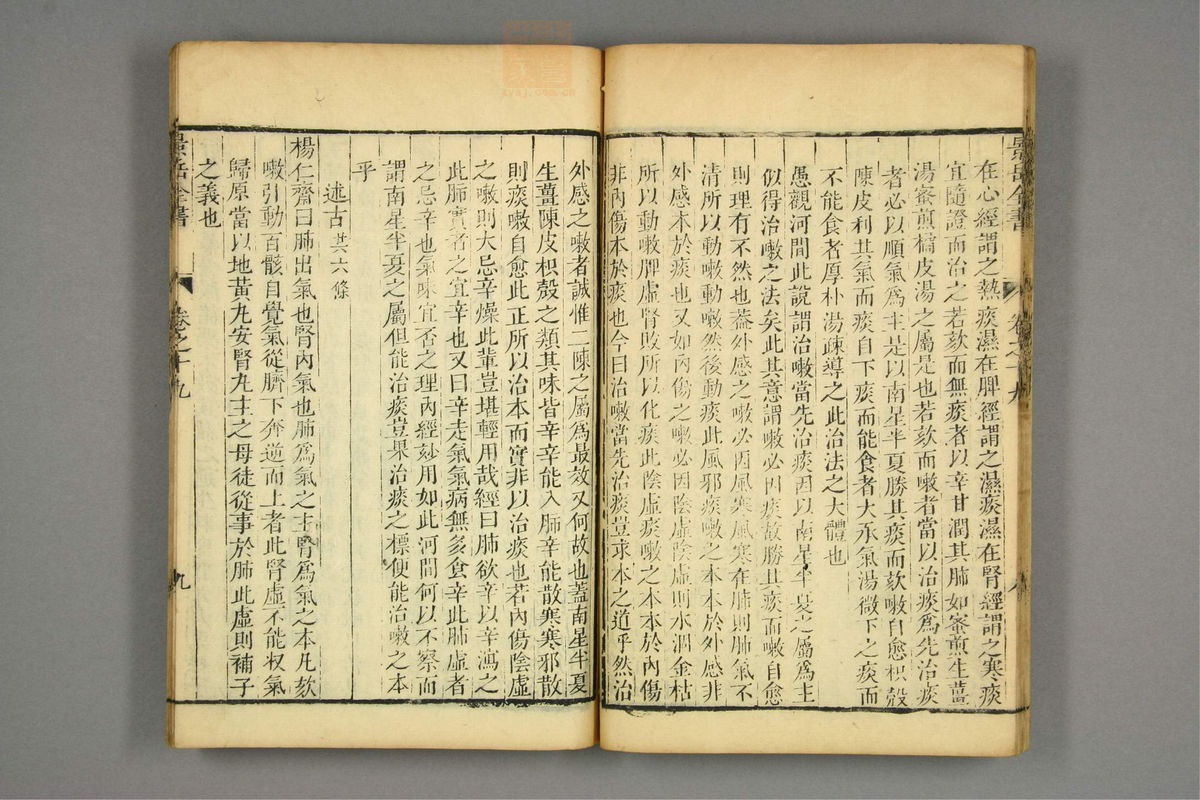 景岳全書
卷之十九
八
在心經謂之熱痰濕在脾經謂之濕痰濕在腎經謂之寒痰
宜隨證而治之若欬而無痰者以辛甘潤其肺如蜜煎生薑
湯蜜煎橘皮湯之屬是也若欬而嗽者當以治痰為先治痰
者必以順氣為主是以南星半夏勝其痰而欬嗽自愈枳殼
陳皮利其氣而痰自下痰而能食者大承氣湯微下之痰而
不能食者厚朴湯疎導之此治法之大體也
愚觀河間此說謂治嗽當先治痰因以南星半夏之屬為主
似得治嗽之法矣此其意謂嗽必因痰故勝其痰而嗽自愈
則理有不然也蓋外感之嗽必因風寒風寒在肺則肺氣不
清所以動嗽動嗽然後動痰此風邪痰嗽之本本於外感非
外感本於痰也又如內傷之嗽必因陰虛陰虛則水涸金枯
所以動嗽脾虛腎敗所以化痰此陰虛痰嗽之本本於內傷
非內傷本於痰也今曰治嗽當先治痰豈求本之道乎然治
外感之嗽者誠惟二陳之屬為最效又何故也蓋南星半夏
生薑陳皮枳殼之類其味皆辛辛能入肺辛能散寒寒邪散
則痰嗽自愈此正所以治本而實非以治痰也若內傷陰虛
之嗽則大忌辛燥此輩豈堪輕用哉經曰肺欲辛以辛瀉之
此肺實者之宜辛也又曰辛走氣氣病無多食辛此肺虛者
之忌辛也氣味宜否之理內經妙用如此河間何以不察而
謂南星半夏之屬但能治痰豈果治痰之標便能治嗽之本
乎
述古共六條
楊仁齋曰肺出氣也腎內氣也肺為氣之主腎為氣之本凡欬
嗽引動百骸自覺氣從臍下奔逆而上者此腎虛不能收氣
歸原當以地黃丸安腎丸主之毋徒從事於肺此虛則補子
之義也
景岳全書
卷之十九
九